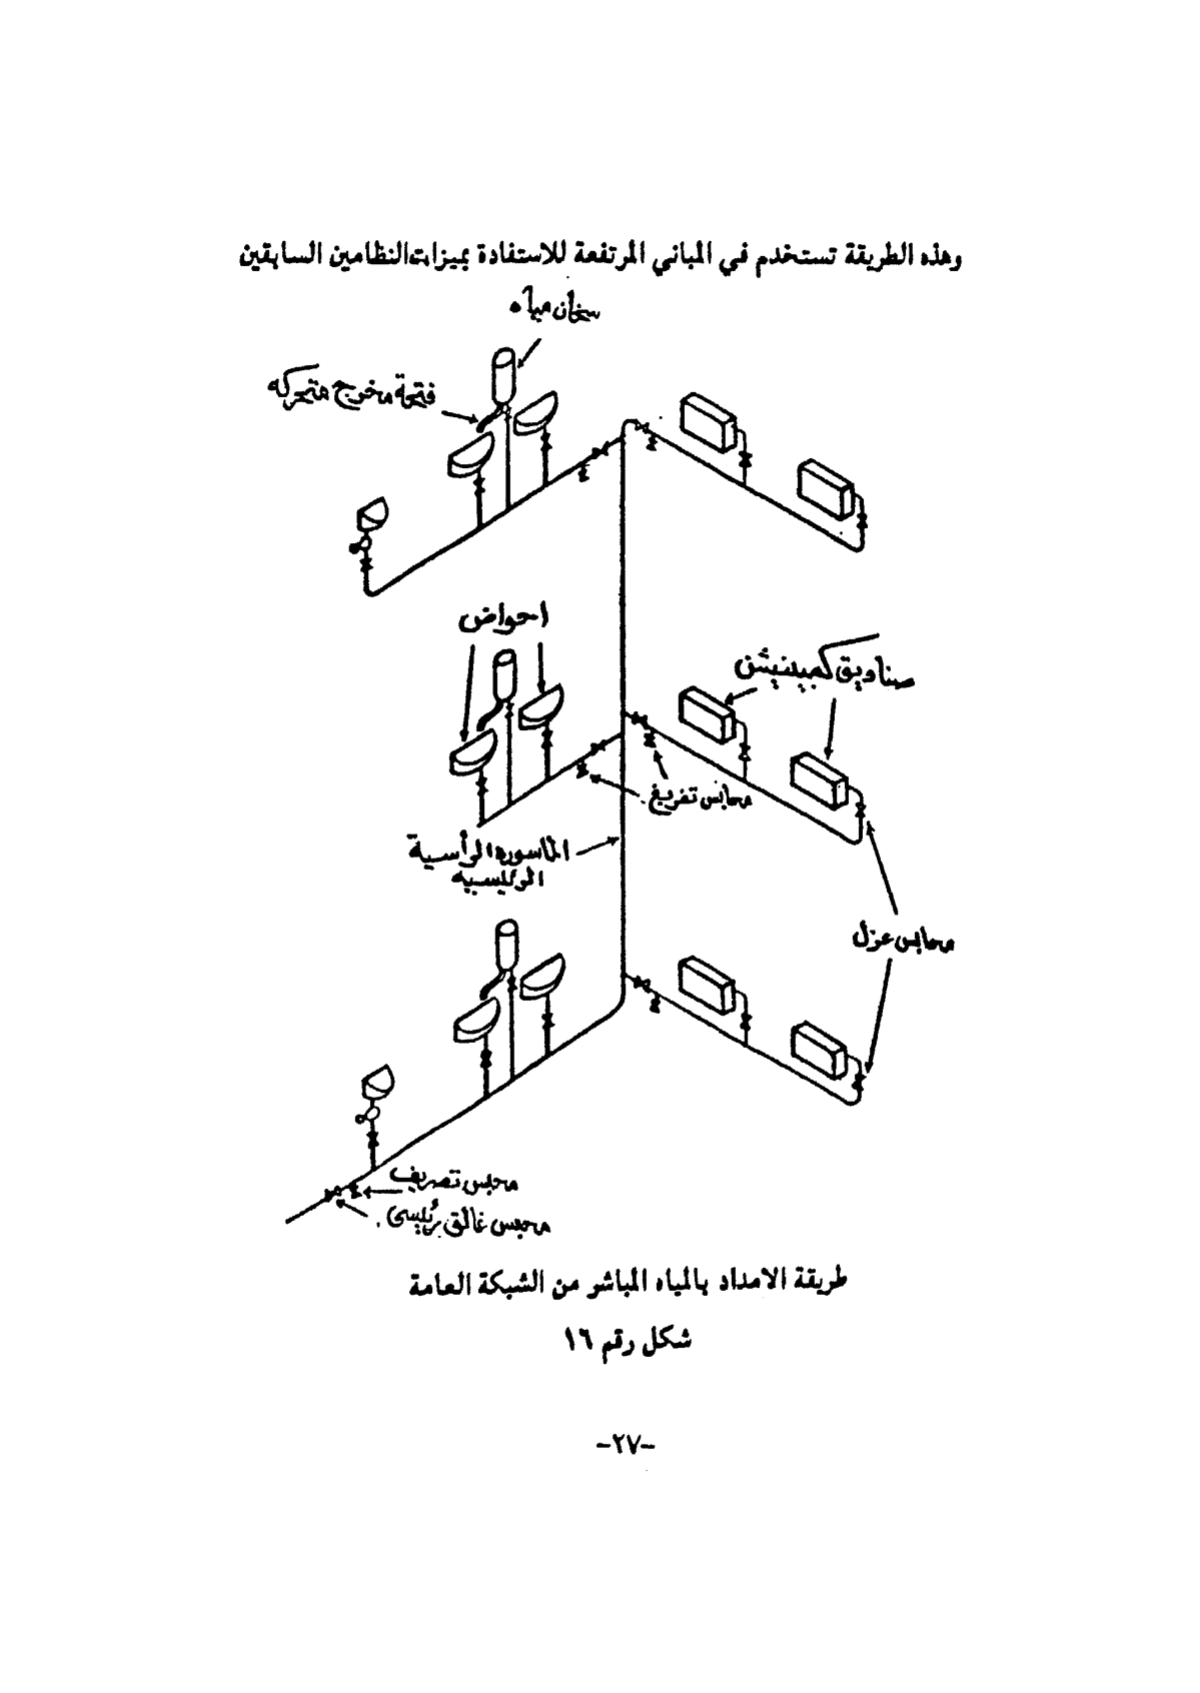 وهذه الطريقة تستخدم في المباني المرتفعة للاستفادة بميزات النظامين السابقين
سخان مياه
فتحة مخرج متحركه
احواض
صناديق كمبينيشن
محابس تفريغ
الماسوره الرأسية
الرئيسيه
محابس عزل
محبس تصريف
محبس غالق رئيسى
طريقة الامداد بالمياه المباشر من الشبكة العامة
شكل رقم ١٦
-٢٧-